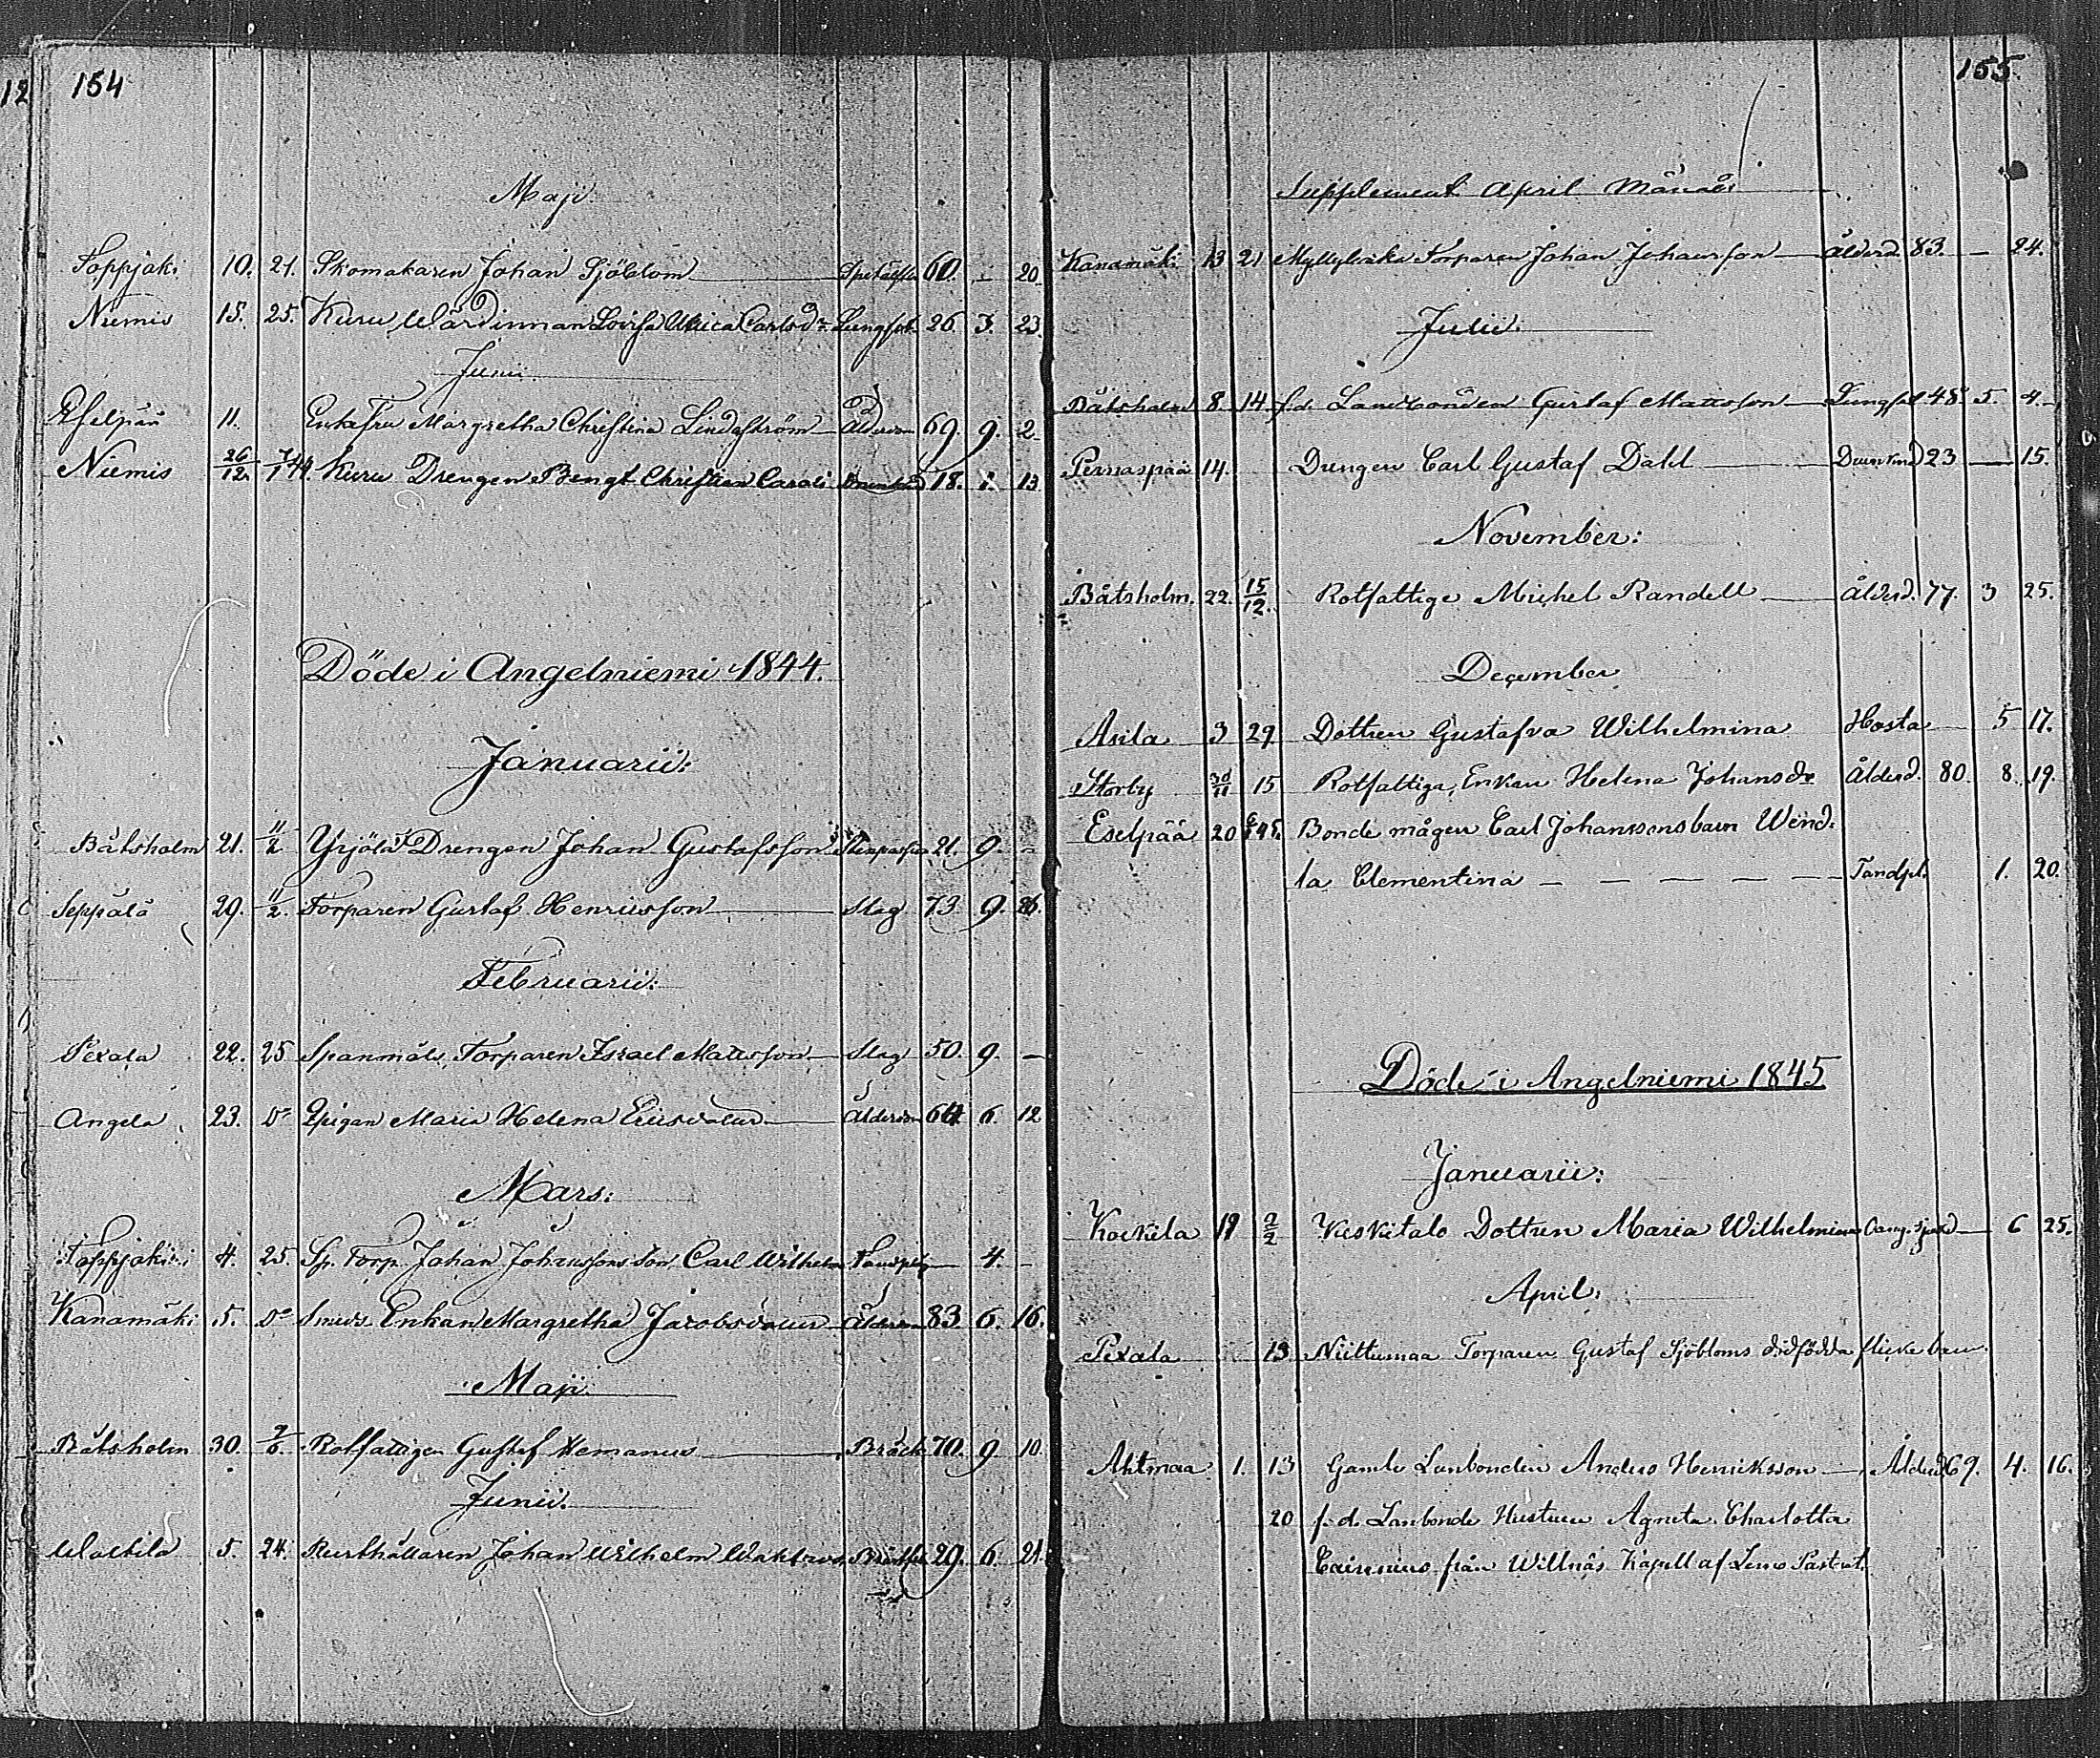 12
154
Maji
Toppjoki 10. 21. Skomakaren Johan Sjöblom 60. — 20
Niemis 15. 25. Kuru Wärdinnan Lovisa Ulrica Carlsdr Lungsot 26 3. 23.
Junii
Eselpää 11. Enkefru Margretha Christina Lindström Ålderdom 69. 9. 2
Niemis 26/12 7/1 44. Kuru Drengen Bengt Christian Drunknad 18. 1. 13
Döde i Angelniemi 1844.
Januarii:
Båtsholm 21. 11/2 Yrjölä Drengen Johan Gustafsson 21. 9. -
Seppälä 29. 11/2. Torparen Gustaf Henricsson Slag 73 9. 26.
Februarii:
Pexala 22. 25 Spanmäls Torparen Israel Matsson Slag 50. 9. —
Angela 23. Do Pigan Maria Helena Ericsdotter Ålderdom 64 6. 12
Mars:
Toppjoki 4. 25. Sp. Torp. Johan Johanssons Son Carl Wilhelm Tandspr — 4. -
Kanamäki 5. Do Smeds Enkan Margretha Jacobsdotter Ålderdom 83 6. 16.
Maji
Båtsholm 30. 9/6. Rotfattigen Gustaf Hemanus Bråck 70. 9 10.
Junii.
Waltila 5. 24. Rusthållaren Johan Wilhelm 29. 6. 21.
155.
Supplement April Månad:
Kanamäki 13 21 Myllykylä Torparen Johan Johansson Ålderd. 83. — 24.
Julii:
Båtsholm 8. 14 f.d. Landbonden Gustaf Matsson Lungsot 48. 5. 4.
Pernaspää 14. Drengen Carl Gustaf Dahl Drunknad 23 — 15.
November:
Båtsholm. 22. 15/12. Rotfattige Michel Randell Ålderd. 77. 3 25.
December
Asila 3 29 Dottren Gustafva Wilhelmina Hosta 5 17.
Storby 30/11 15 Rotfattiga Enkan Helena Johansdr Ålderd. 80. 8. 19.
Eselpää 20 6/1 45. Bonde mågen Carl Johanssons barn Wend:
la Clementina — — — — — Tandspr. 1. 20.
Döde i Angelniemi 1845
Januarii:
Kockila 19 2/2 Keskitalo Dottren Maria Wilhelmina Lang. sjukd — 6 25.
April:
Pexala 13. Niittumaa Torparen Gustaf Sjöbloms dödfödda flicke barn.
Ahtmaa 1. 13 Gamle Lanbonden Anders Henriksson Ålderd 69. 4. 16.
20 f. d. Lanbonde Hustrun Agneta Charlotta
från Willnäs Kapell af Lemo Pastorat.